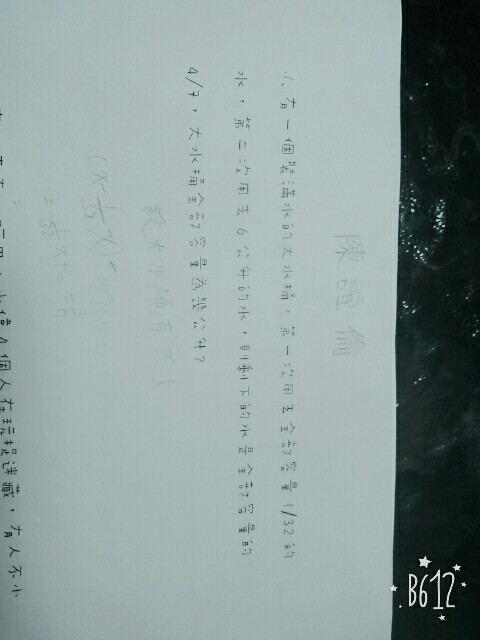 陳誼倫
1. 有一個裝滿水的大水桶，第一次用去全部容量1/32的
水，第二次用去6公升的水，則剩下的水是全部容量的
4/7，大水桶全部容量為幾公升？
個人在玩捉迷藏，有人不小
B612